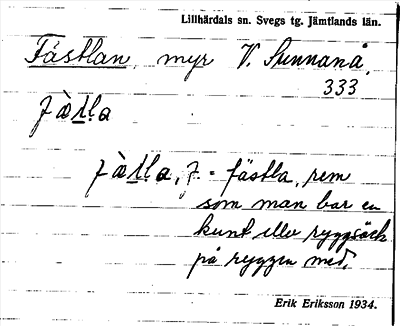 Lillhärdals sn. Svegs tg. Jämtlands län.
Fästlan, myr V. Sunnanå,
333
fà̱ṯḷa
fà̱ṯḷa, f. = fästla, rem
som man bar en
kunt eller ryggsäck
på ryggen med.
Erik Eriksson 1934.